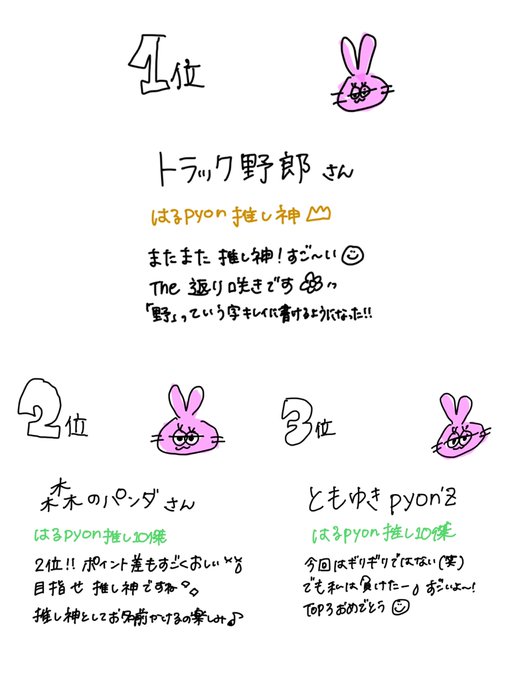 1位
トラック野郎 さん
はるpyon 推し神
またまた 推し神！すご〜い
The 返り咲きです
「野」っていう字キレイに書けるようになった!!
2位
森のパンダ さん
はるpyon推し10傑
2位!! ポイント差もすごくおしい
目指せ 推し神ですね
推し神としてお名前かけるの楽しみ♪
3位
ともゆき pyon'z
はるpyon推し10傑
今回はギリギリではない(笑)
でも私は負けたー」すごいよ〜!
TOP3おめでとう